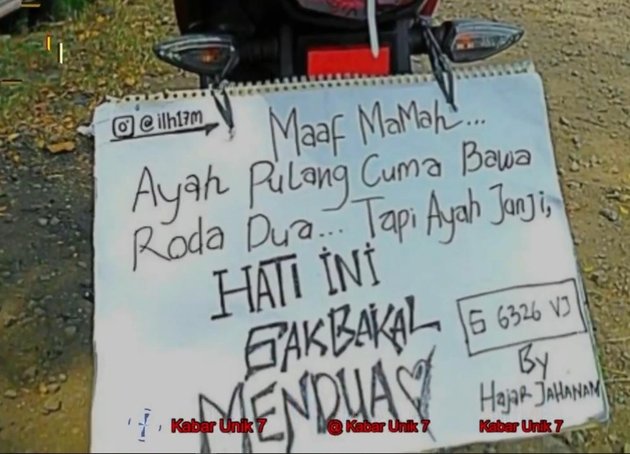 @ilh17m
Maaf MaMah...
Ayah Pulang Cuma Bawa
Roda Dua... Tapi Ayah Janji,
HATI iNi
GAKBAKAL
MENDUA
G 6326 VJ
By
Hajar JAHANAM
Kabar Unik 7
@ Kabar Unik 7
Kabar Unik 7